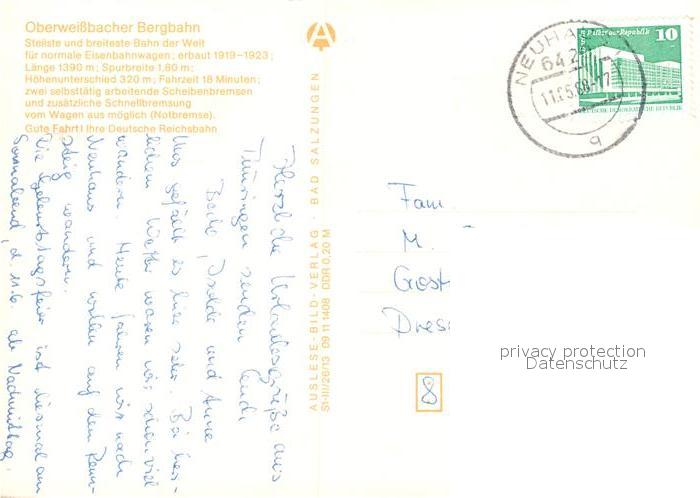 Oberweißbacher Bergbahn
Steilste und breiteste Bahn der Welt
für normale Eisenbahnwagen; erbaut 1919–1923;
Länge 1390 m; Spurbreite 1,80 m;
Höhenunterschied 320 m; Fahrzeit 18 Minuten;
zwei selbsttätig arbeitende Scheibenbremsen
und zusätzliche Schnellbremsung
vom Wagen aus möglich (Notbremse).
Gute Fahrt! Ihre Deutsche Reichsbahn
Herzliche Urlaubsgrüße aus
Thüringen senden Euch
Isolde und Anne
Uns gefällt es hier sehr. Bei herr-
lichem Wetter waren wir schon viel
wandern. Heute fahren wir nach
Neuhaus und wollen auf dem Renn-
steig wandern.
Die Geburtstagsfeier ist diesmal am
Sonnabend, d. 11.6. ab Nachmittag.
AUSLESE-BILD-VERLAG · BAD SALZUNGEN
S1-III/26/13 09 11 1408 DDR 0,20 M
NEUHA
642
11.05.88-17
a
Palast der Republik 10
DEUTSCHE DEMOKRATISCHE REPUBLIK
Fam.
M.
Gost
Dres
8
privacy protection
Datenschutz